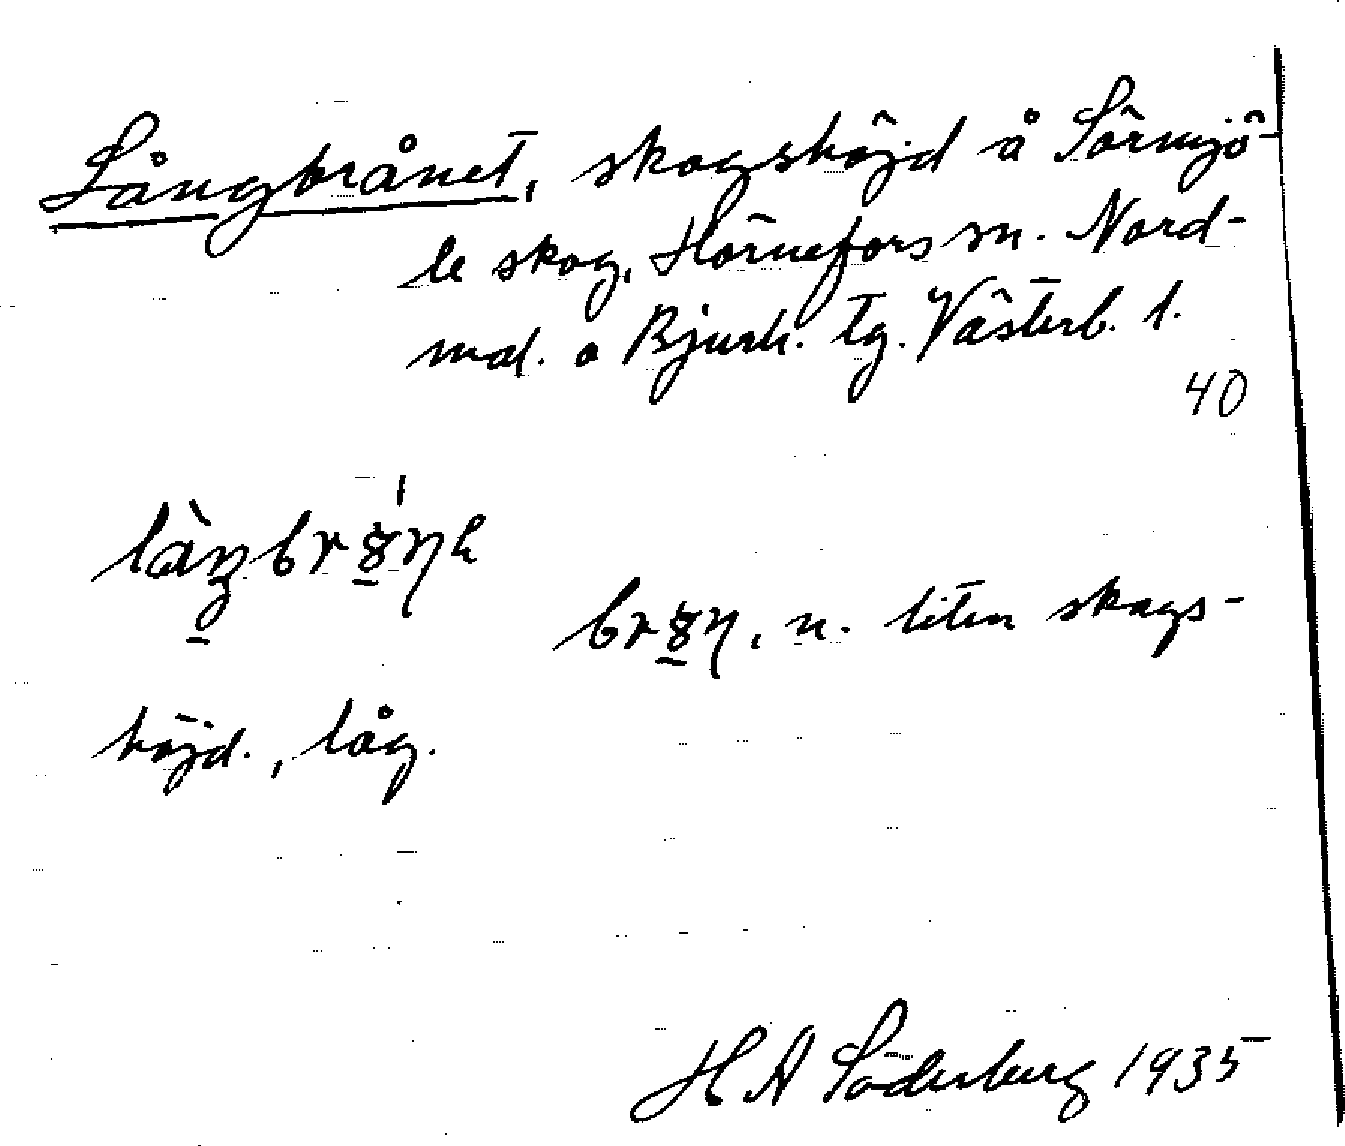 Långbrånet, skogshöjd å Sörmjö-
le skog, Hörnefors sn. Nord-
mal. o Bjurh. tg. Västerb. l.
40
n. liten skogs-
höjd., låg.
H A Söderberg 1935